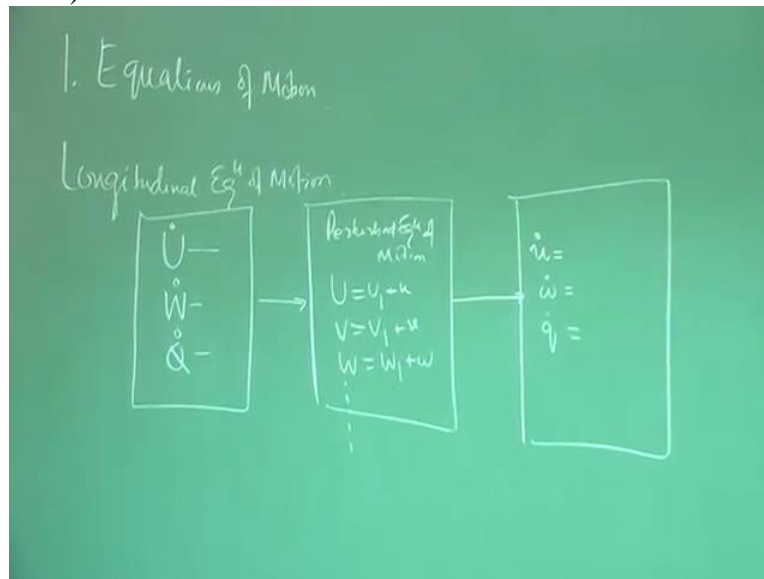 1. Equations of Motion
Longitudinal Eqn of Motion
U̇ —
Ẇ –
Q̇ –
Perturbed Eqn of
Motion
U = U₁ + u
V = V₁ + u
W = W₁ + w
u̇ =
ẇ =
q̇ =